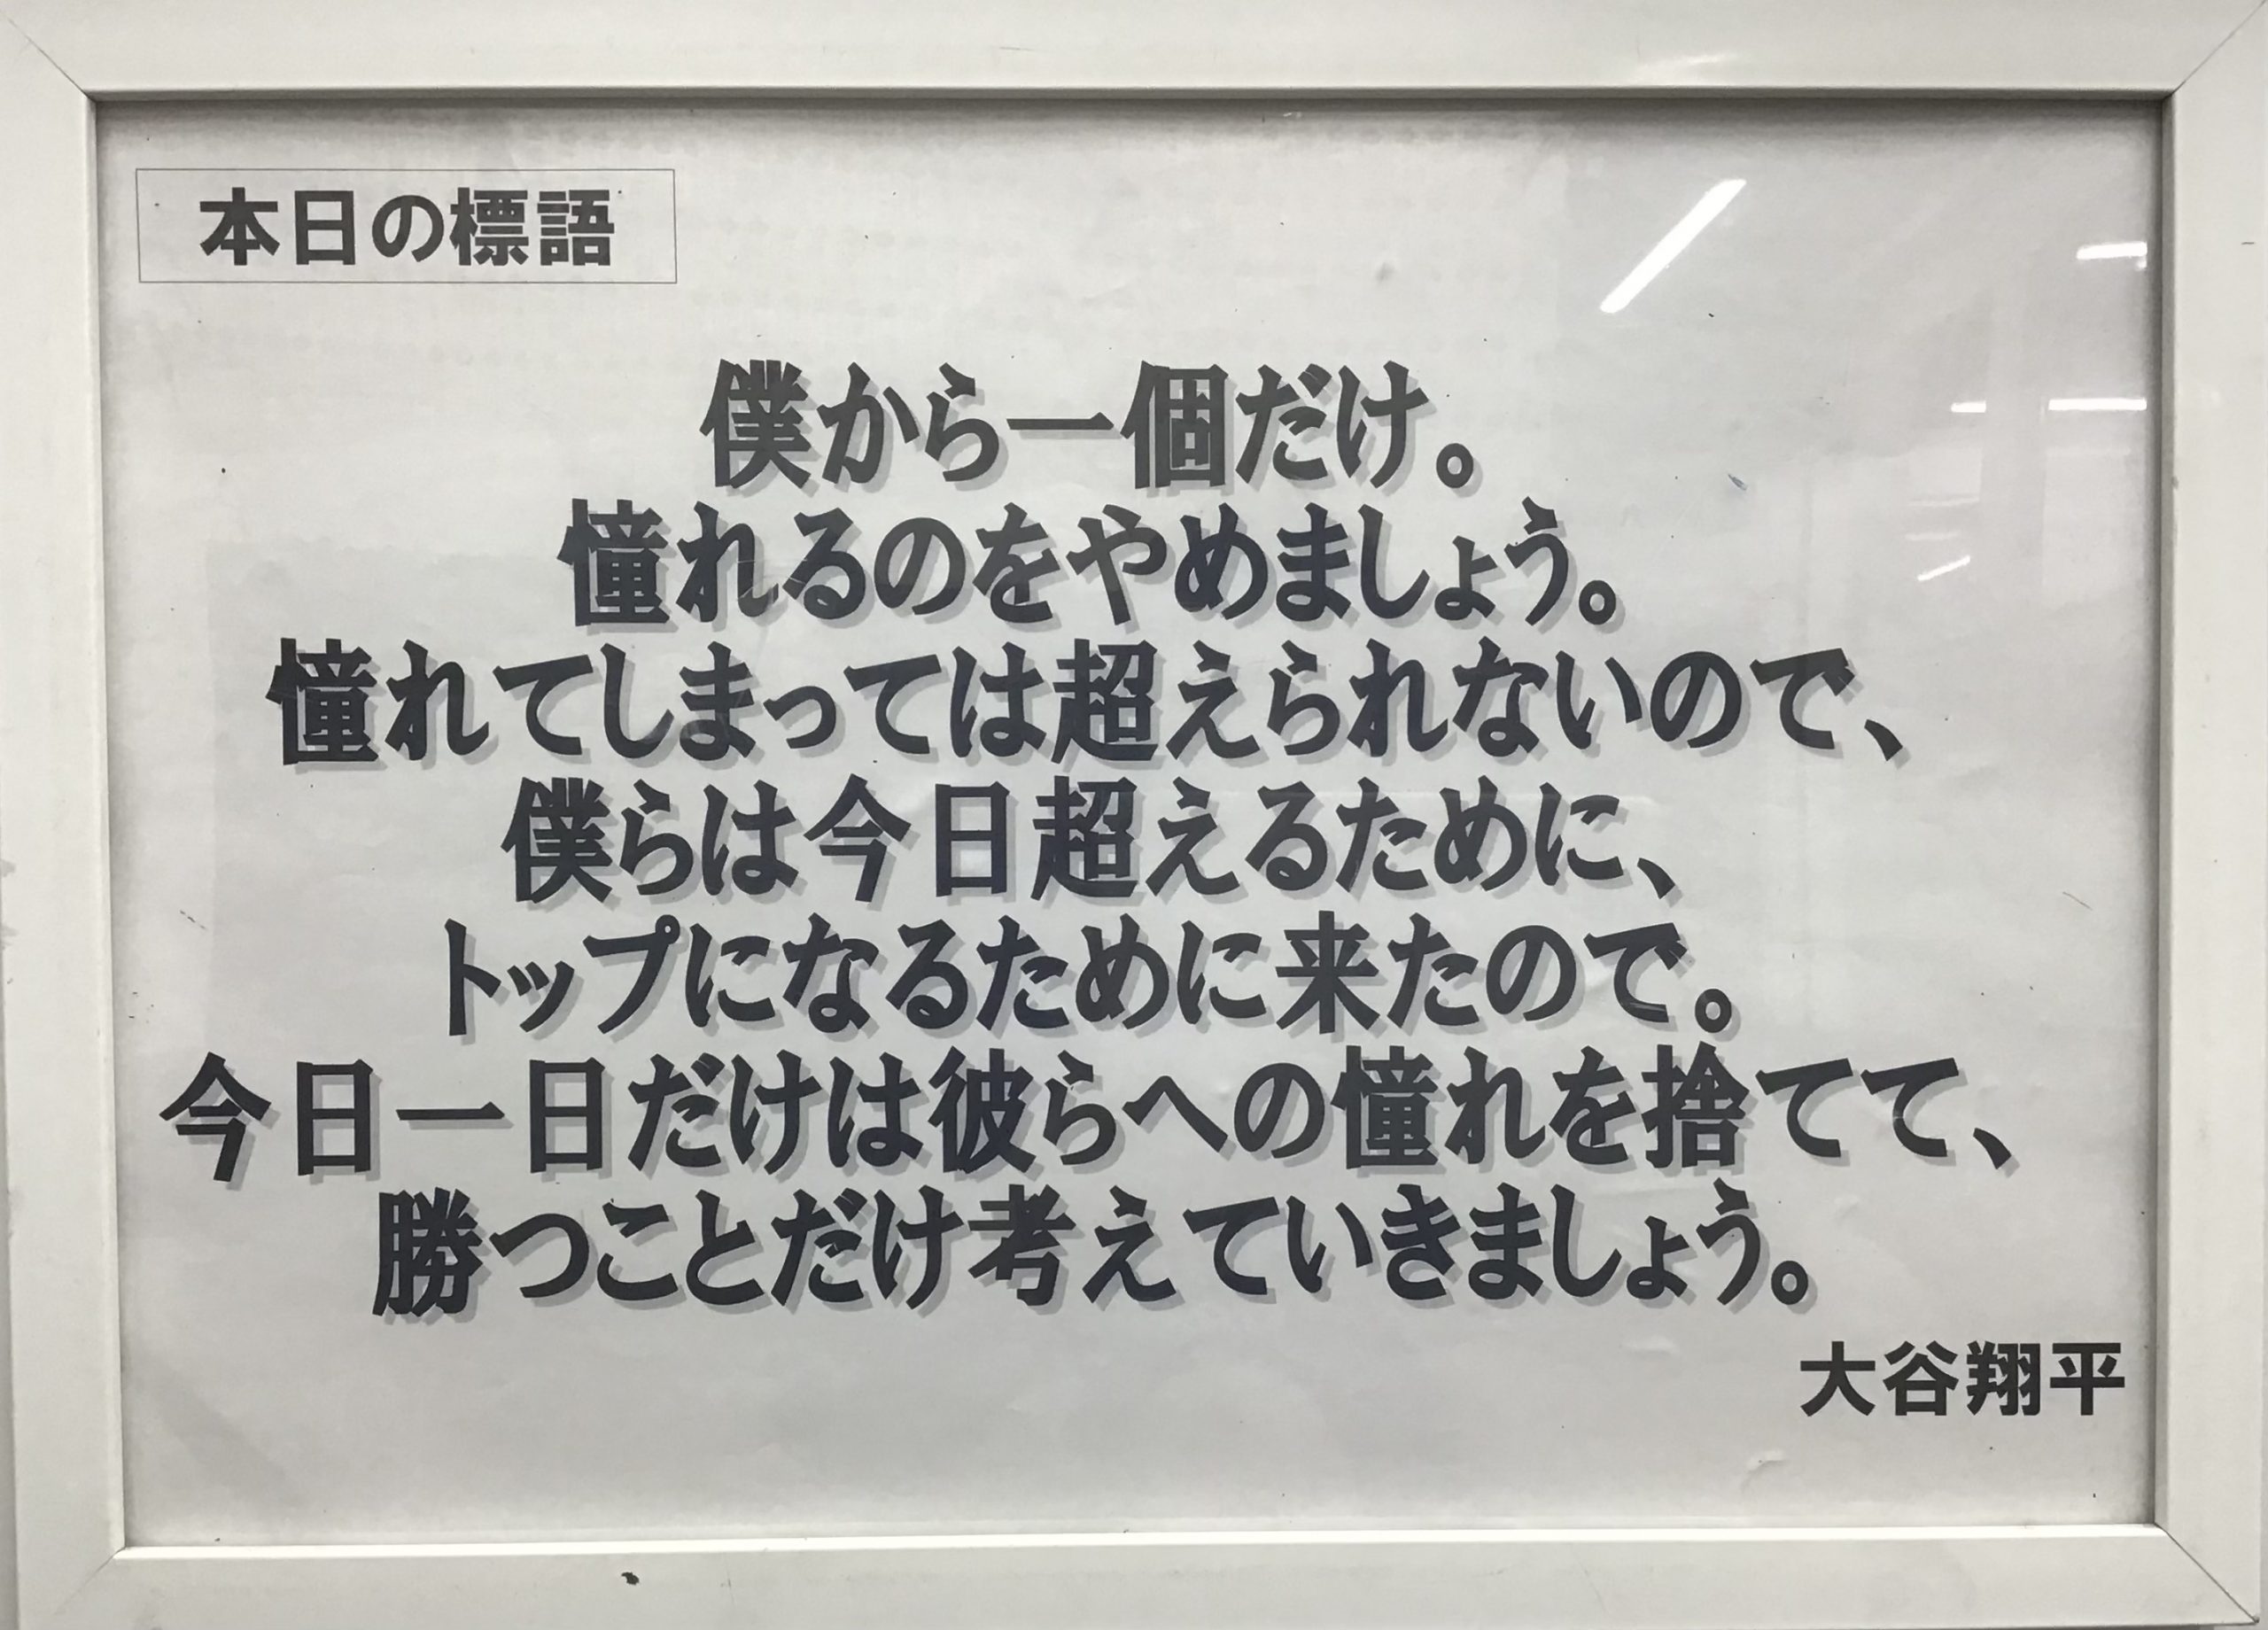 本日の標語
僕から一個だけ。
憧れるのをやめましょう。
憧れてしまっては超えられないので、
僕らは今日超えるために、
トップになるために来たので。
今日一日だけは彼らへの憧れを捨てて、
勝つことだけ考えていきましょう。
大谷翔平